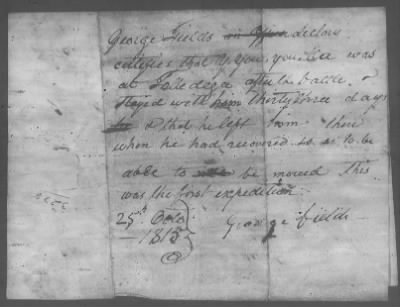 George Fields declares
certifies that was
at Taledega after battle &
stayed with him thirty three days
& that he left from there
when he had recovered so as to be
able to be moved This
was the first expedition
25th Octo
1815
George Fields